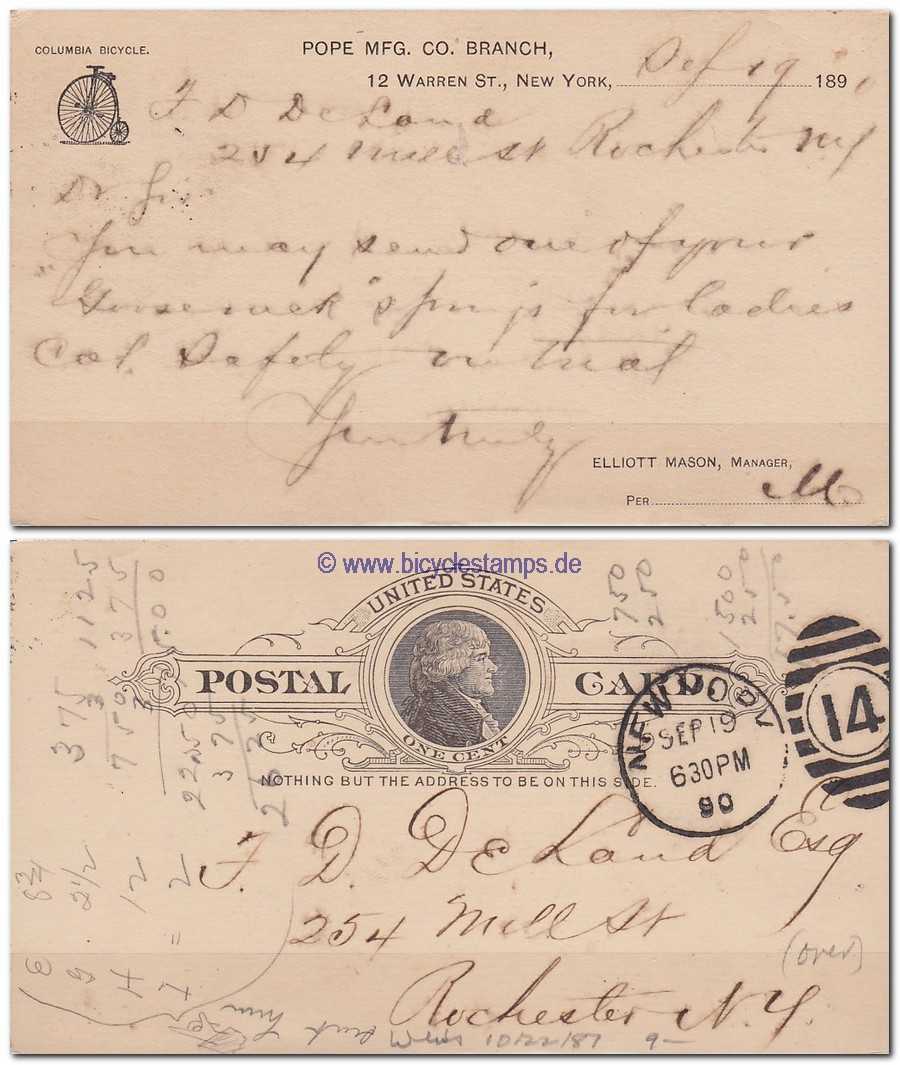 COLUMBIA BICYCLE.
POPE MFG. CO. BRANCH,
12 WARREN ST., NEW YORK, Sep 19 1890
F D De Land
254 Mill St Rochester NY
Dr Sir
You may send one of your
"Gooseneck" springs for Ladies
Col. Safety on trial
Yours truly
ELLIOTT MASON, MANAGER,
PER M
© www.bicyclestamps.de
UNITED STATES
POSTAL CARD
ONE CENT
NOTHING BUT THE ADDRESS TO BE ON THIS SIDE.
NEW YORK
SEP 19
630PM
90
14
F. D. De Land Esq
254 Mill St
(over)
Rochester N.Y.
10/22/87 9-
375
3
1125
375
750
250
1500
250
12
2